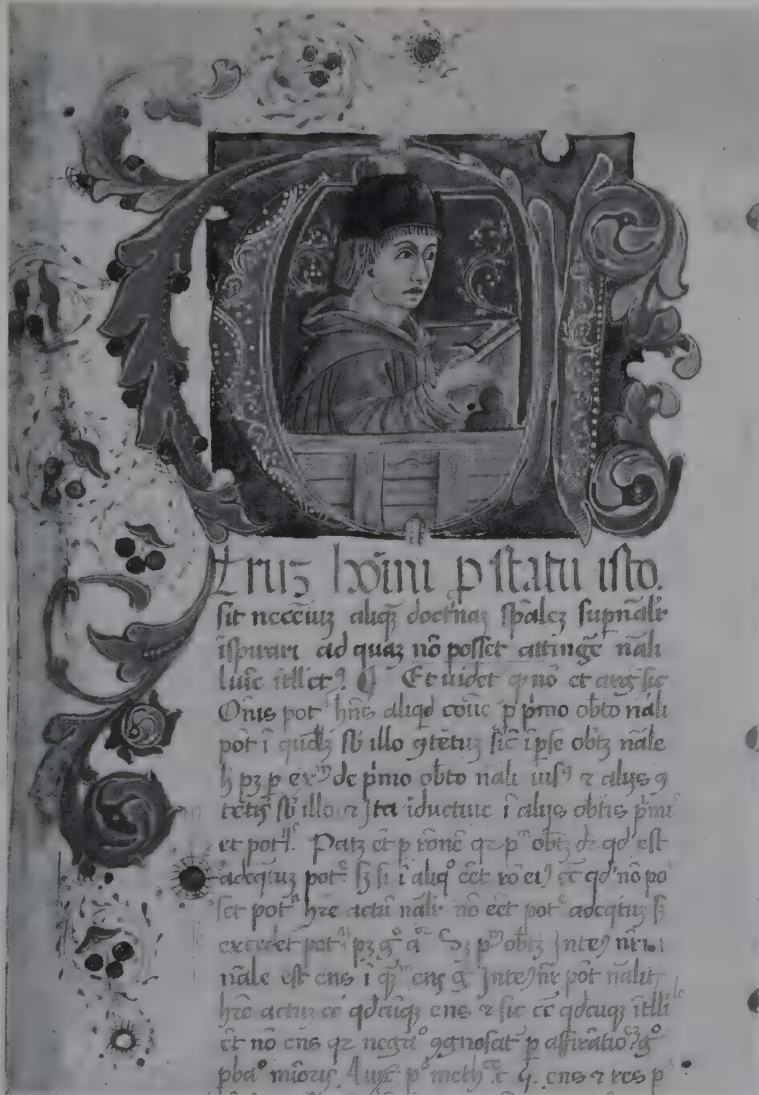 Utruʒ hoı̄nı ꝓ statu isto.
sit necc̄iuʒ aliqᷓ̄ doct'naʒ sp̄aleʒ sup̄nalr̄
īspirari ad quaʒ nō posset attinḡe nāli
lūīe ītllctꝰ. ¶ Et uidet̄ ꝙ nō et arḡ sic
Om̄is pot̄ hn̄s aliqd cōūe ꝓ p̄mo obt̄o nāli
pōt ī qudlʒ sb̄ illo ꝯtētuʒ sic̄ ī pse obtʒ nāle
h̄ pʒ p exᵐ de p̄mo obt̄o nāli uisꝰ ⁊ alijs ꝯ
tētis sb̄ illo ⁊ Jta īductiue ī alijs obtis p̄mis
et potⁱˢ. Patʒ ēt p rōnē qꝛ pᵐ obtʒ dr̄ qd̄ est
adeqtuʒ potᵉ sʒ si ī aliqᵒ eēt rō eiꝰ cē qd̄ nō po
set potᵃ hr̄e actū nālr̄ nō eēt potᵉ adeqtuʒ sʒ
excedet potᵃ pʒ gᵒ aᷓ Sʒ pᵐ obtʒ Jnteꝯ nr̄i
nāle est ens ī qᷓʒ ens g̊ Jnteꝯ nr̄ pōt nālit̄
hr̄e actuʒ cē qdcūqʒ ens ⁊ sic cē qdcuqʒ ītlli
ēt nō ens qꝛ negᵒ ꝯgnoscat̄ p affir̄atioᵉʒ gᵒ
pbaᵒ mīoris Auiᶜ pᵒ meth .c .5. ens ⁊ res pᵃ